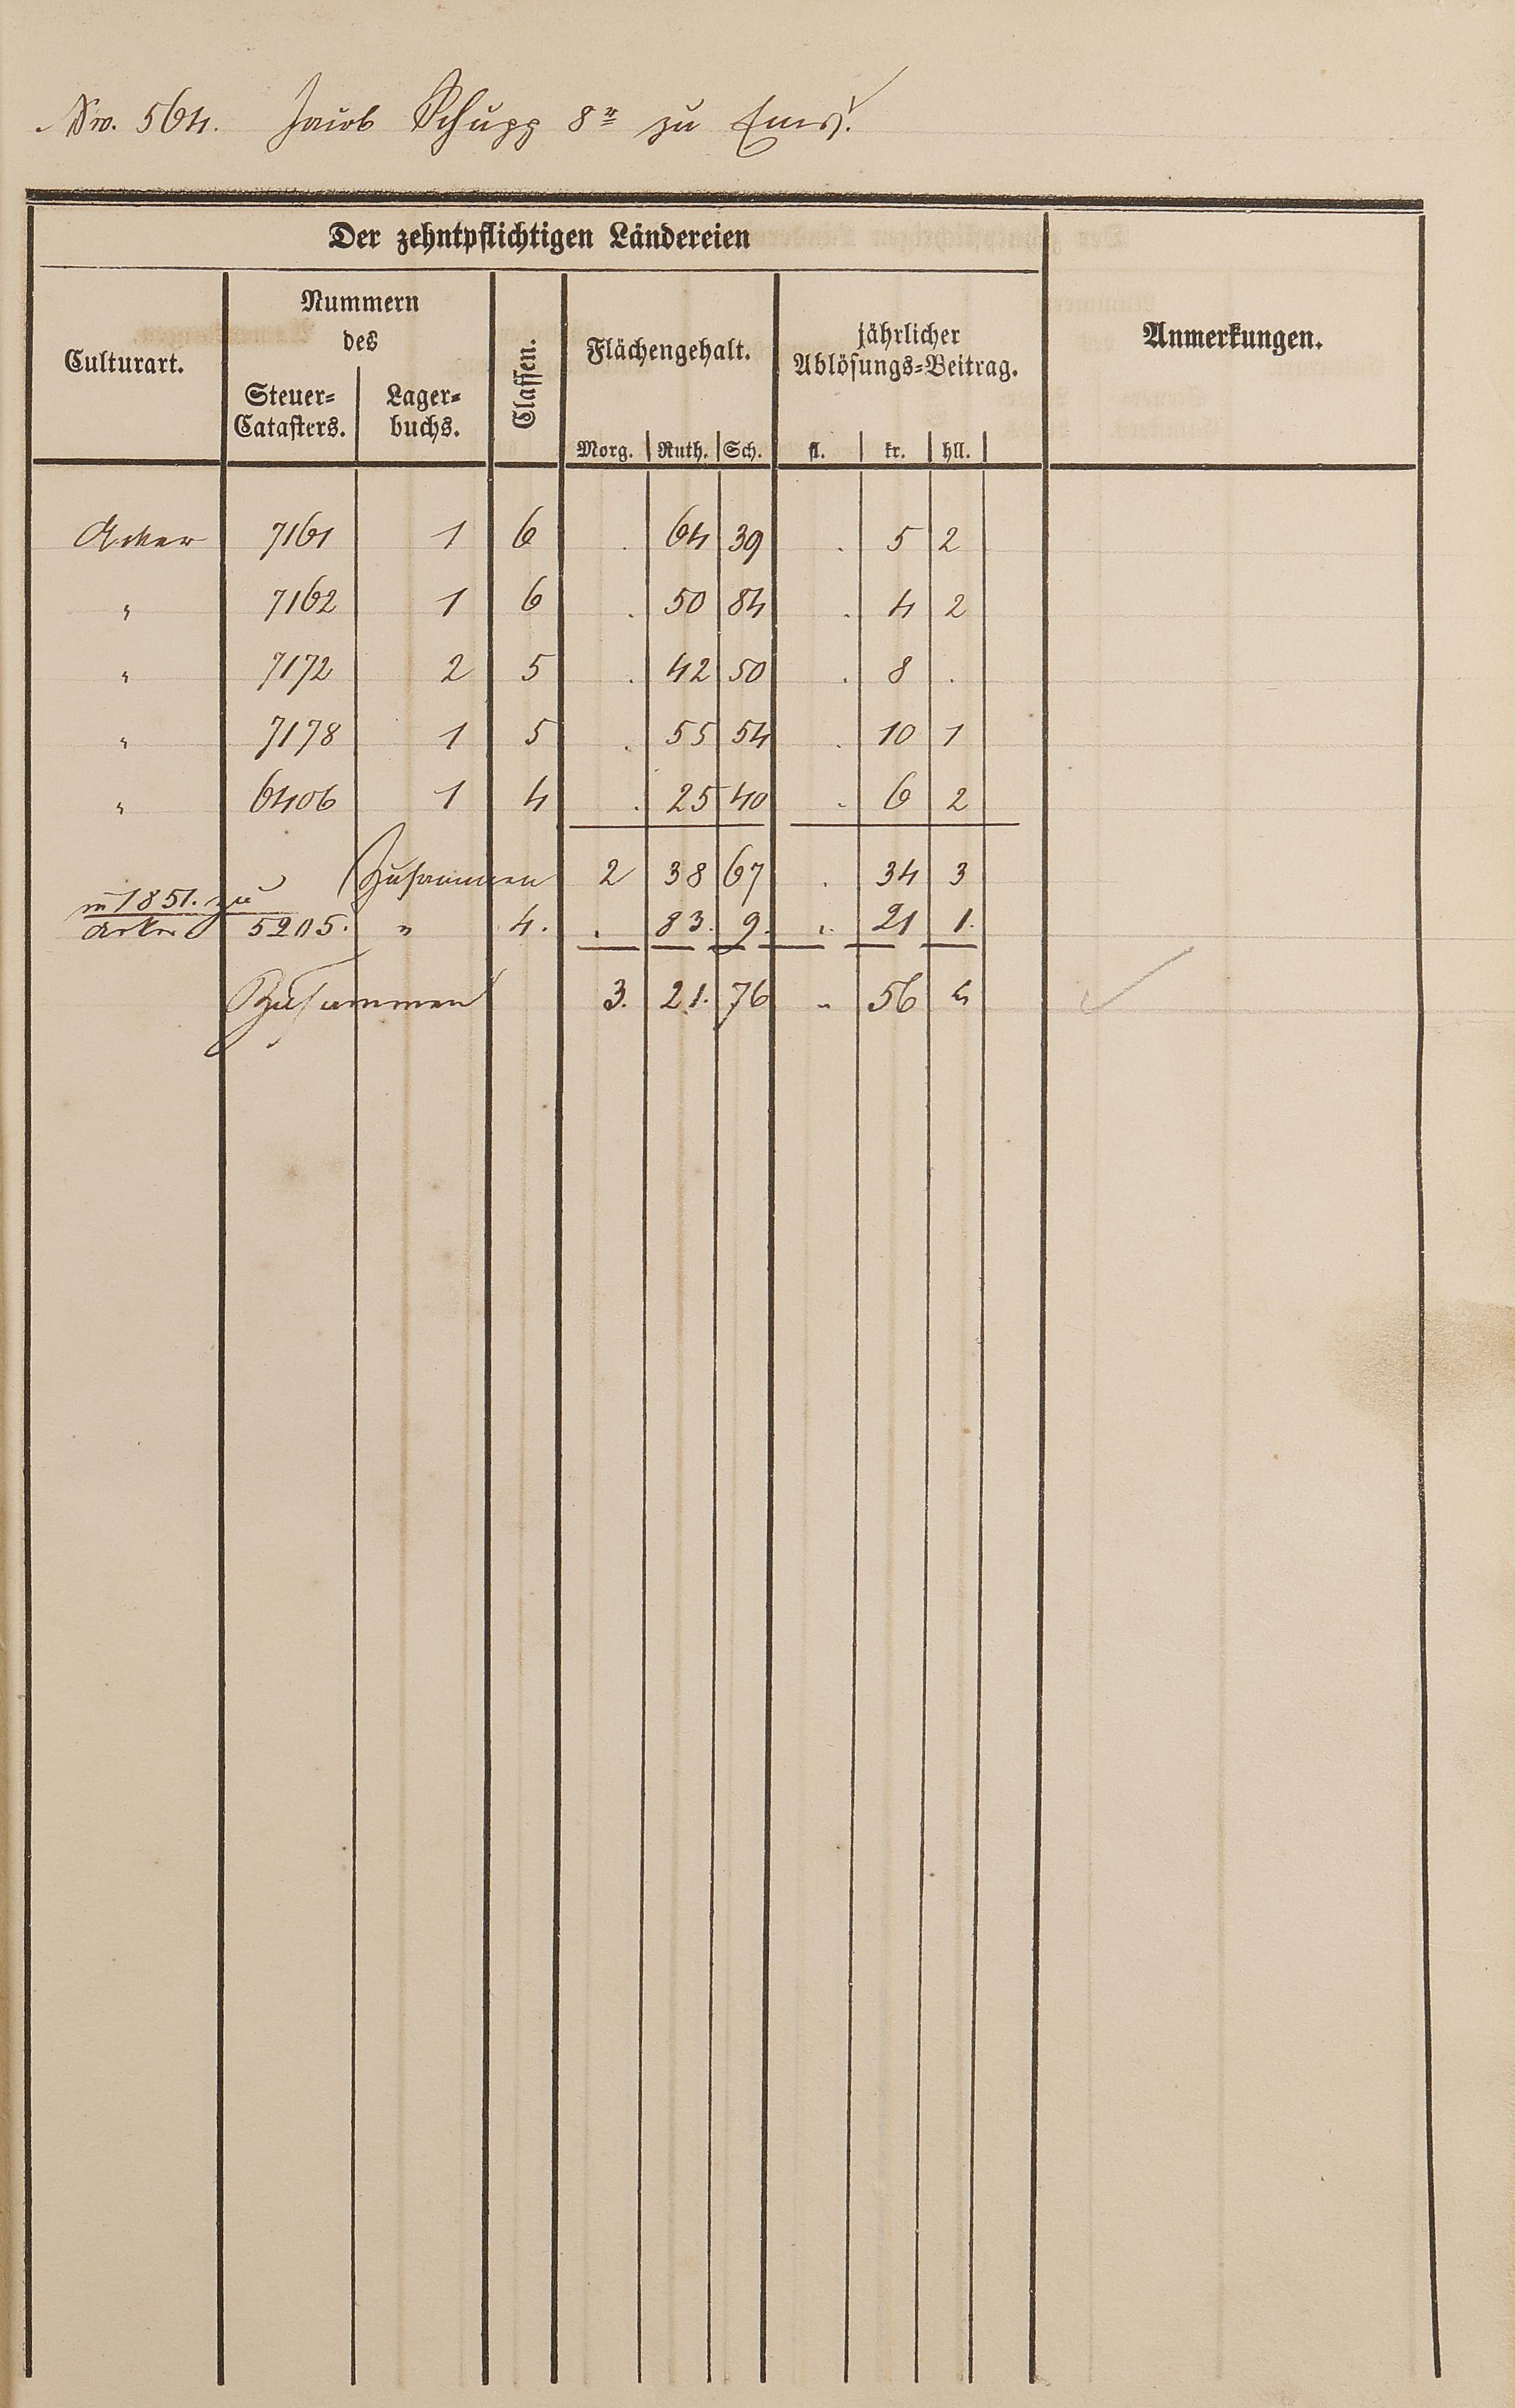 No. 564. Jacob Schupp 8r zu Ems.
Der zehntpflichtigen Ländereien
Culturart.
Nummern
des
Steuer-
Catasters.
Lager-
buchs.
Classen.
Flächengehalt.
Morg. Ruth. Sch.
jährlicher
Ablösungs-Beitrag.
fl. kr. hll.
Anmerkungen.
Acker 7161 1 6 . 64 39 . 5 2
" 7162 1 6 . 50 84 . 4 2
" 7172 2 5 . 42 50 . 8 .
" 7178 1 5 . 55 54 . 10 1
" 6406 1 4 . 25 40 . 6 2
Zusammen 2 38 67 . 34 3
in 1851. zu
Acker 5205. " 4. . 83. 9. . 21 1.
Zusammen 3. 21. 76 " 56 4